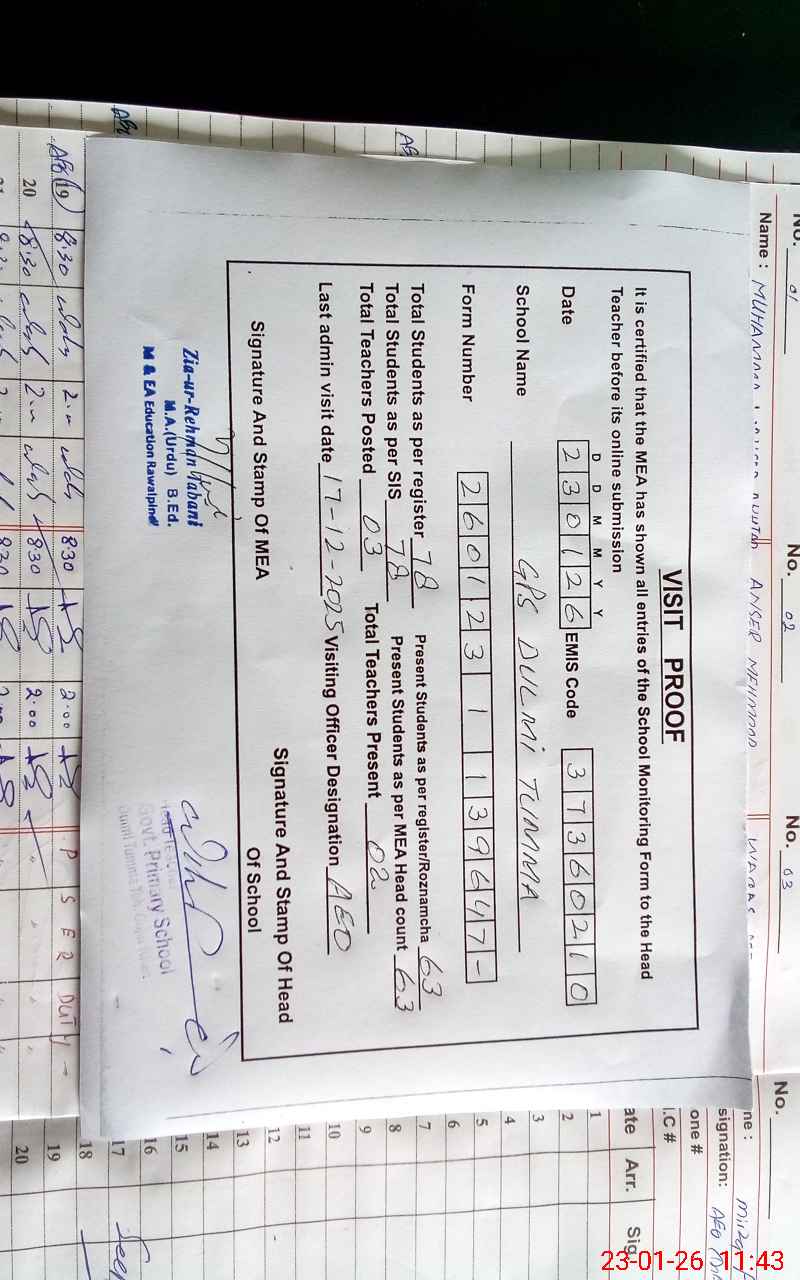 VISIT PROOF
It is certified that the MEA has shown all entries of the School Monitoring Form to the Head
Teacher before its online submission
D D M M Y Y
Date 2 3 0 1 2 6 EMIS Code 3 7 3 6 0 2 1 0
School Name GPS DULMI TUMMA
Form Number 2 6 0 1 2 3 1 1 3 9 6 4 7 -
Total Students as per register 78 Present Students as per register/Roznamcha 63
Total Students as per SIS 78 Present Students as per MEA Head count 63
Total Teachers Posted 03 Total Teachers Present 02
Last admin visit date 17-12-2025 Visiting Officer Designation AEO
Signature And Stamp Of MEA
Signature And Stamp Of Head
Of School
Zia-ur-Rehman Tabani
M.A.(Urdu) B.Ed.
M & EA Education Rawalpindi
Govt. Primary School
No. 01
No. 02
No. 03
No.
Name : MUHAMMAD
ANSER MEHMOOD
signation: AEO
one #
I.C #
ate Arr. Sig
1
2
3
4
5
6
7
8
9
10
11
12
13
14
15
16
17
18
19
20
19 8:30 2:00 8:30 2:00
20 8:30 2:00 8:30 2:00
P S E R DUTY
23-01-26 11:43